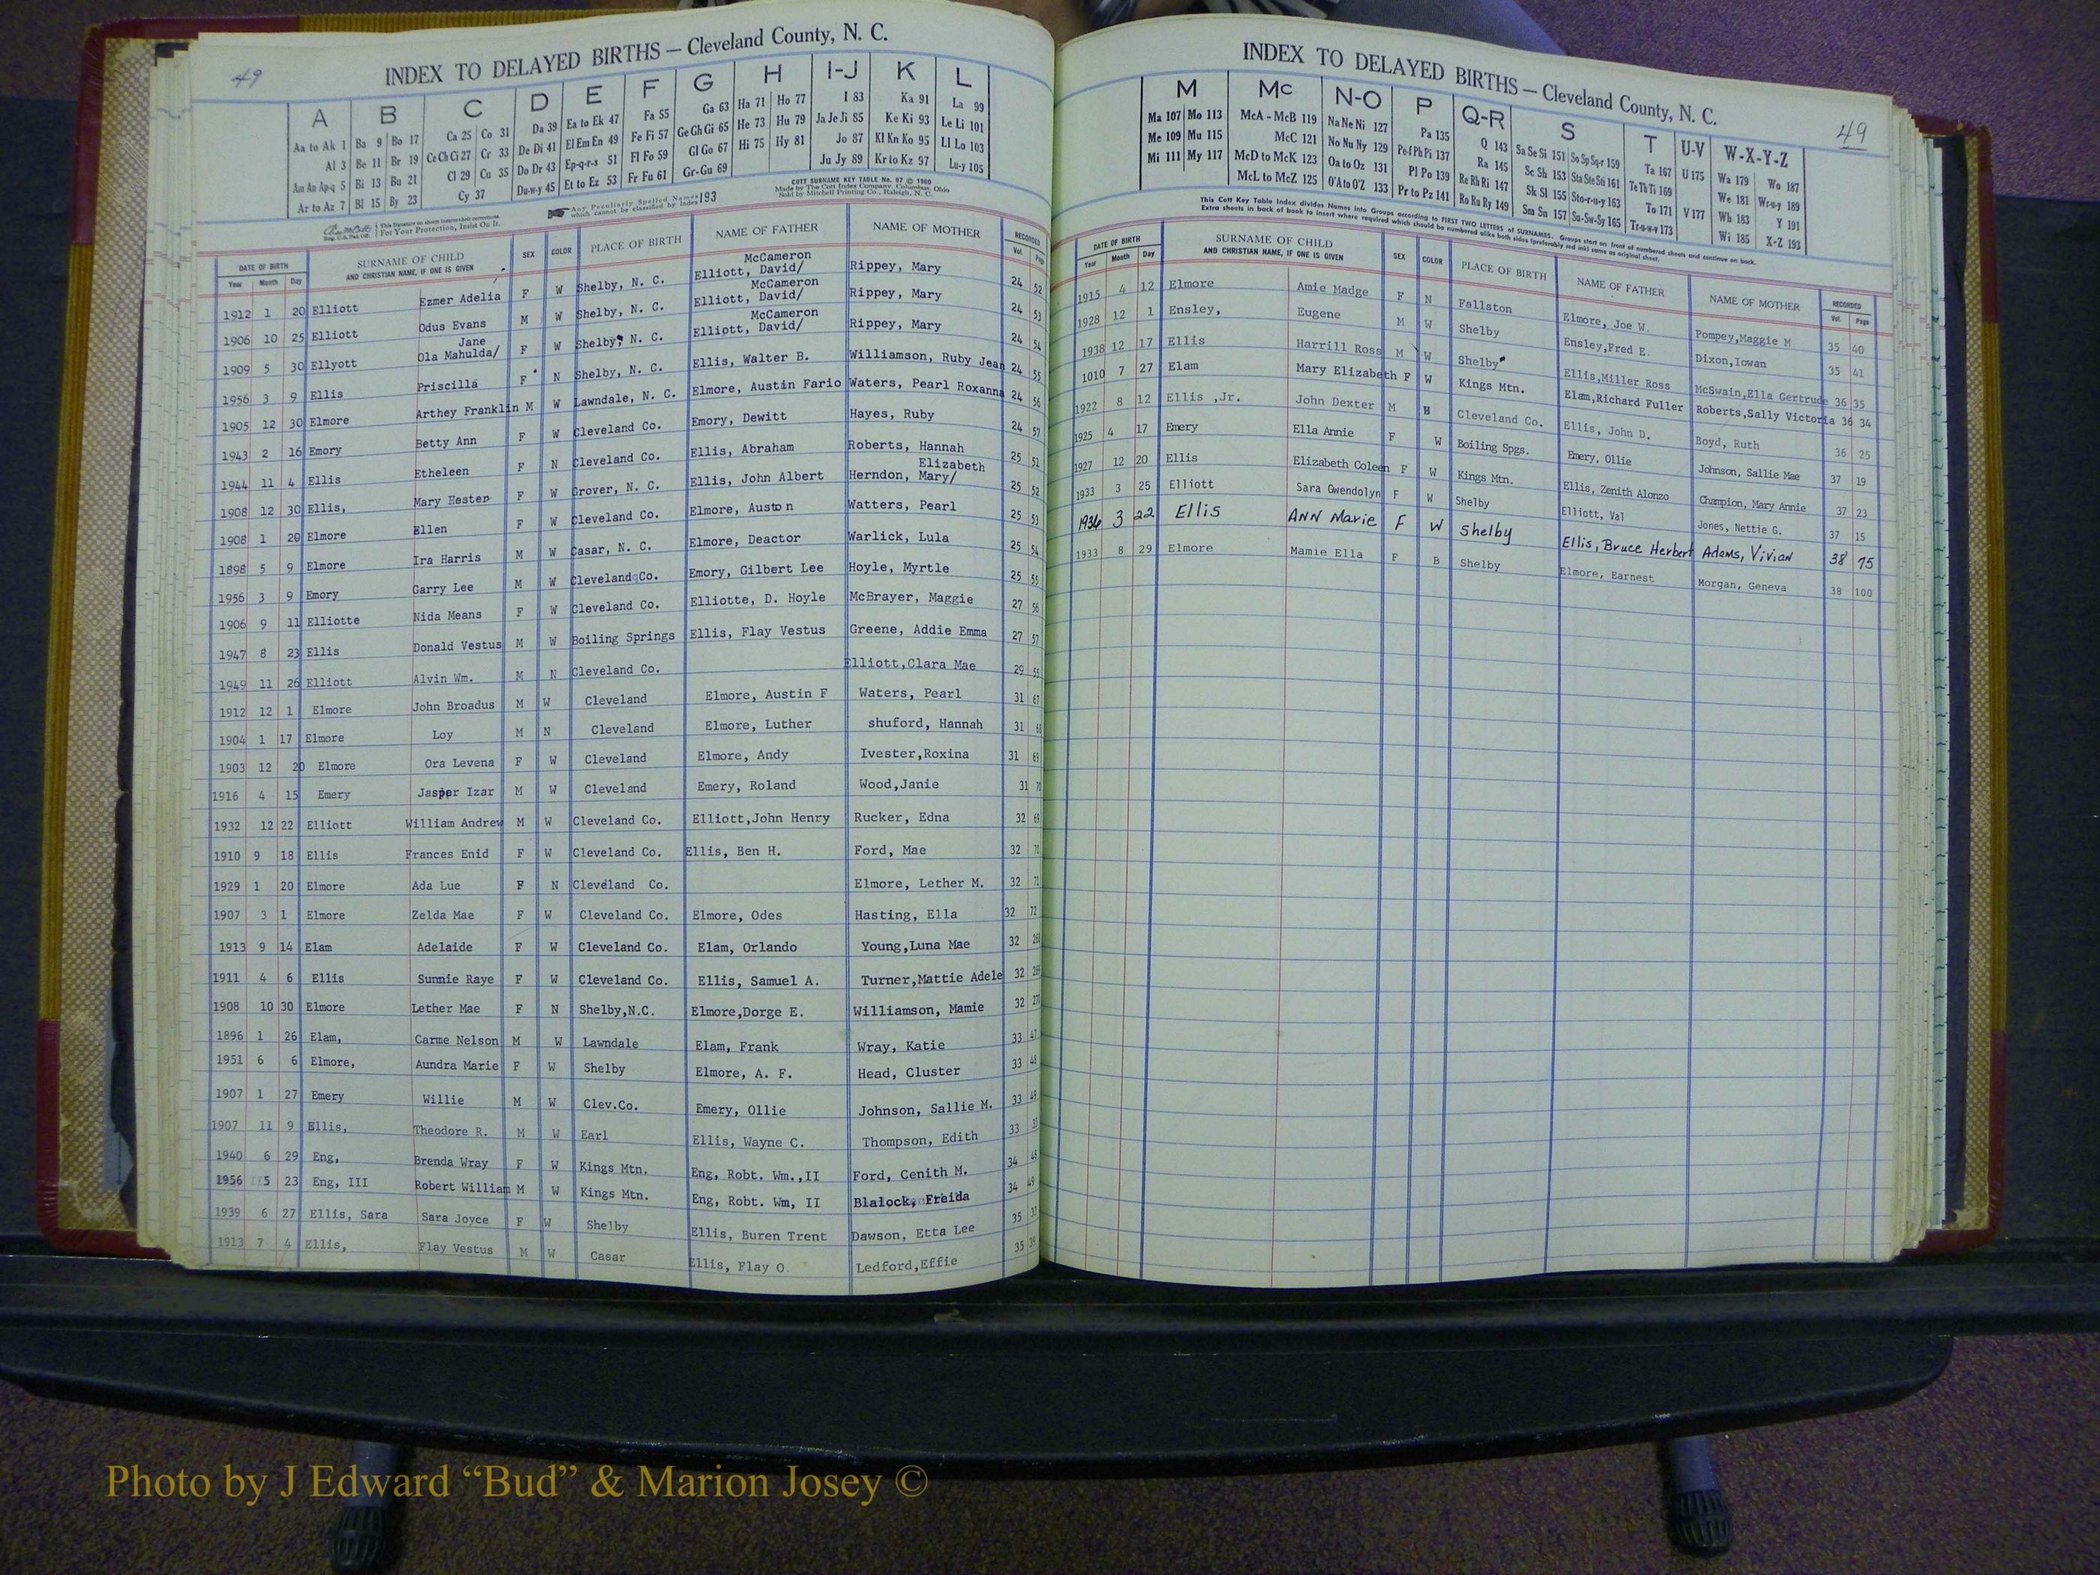 49
INDEX TO DELAYED BIRTHS — Cleveland County, N. C.
A B C D E F G H I-J K L
Aa to Ak 1 Ba 9 Bo 17 Ca 25 Co 31 Da 39 Ea to Ek 47 Fa 55 Ga 63 Ha 71 Ho 77 I 83 Ka 91 La 99
Al 3 Be 11 Br 19 Ce Ch Ci 27 Cr 33 De Di 41 El Em En 49 Fe Fi 57 Ge Gh Gi 65 He 73 Hu 79 Ja Je Ji 85 Ke Ki 93 Le Li 101
Am An Ap-q 5 Bi 13 Bu 21 Cl 29 Cu 35 Do Dr 43 Ep-q-r-s 51 Fl Fo 59 Gl Go 67 Hi 75 Hy 81 Jo 87 Kl Kn Ko 95 Ll Lo 103
Ar to Az 7 Bl 15 By 23 Cy 37 Du-w-y 45 Et to Ez 53 Fr Fu 61 Gr-Gu 69 Ju Jy 89 Kr to Kz 97 Lu-y 105
For Your Protection, Insist On It.
Any Peculiarly Spelled Names which cannot be classified by Index 193
COTT SURNAME KEY TABLE No. 97 © 1960
Made by The Cott Index Company, Columbus, Ohio
Sold by Mitchell Printing Co., Raleigh, N. C.
DATE OF BIRTH SURNAME OF CHILD SEX COLOR PLACE OF BIRTH NAME OF FATHER NAME OF MOTHER RECORDED
Year Month Day AND CHRISTIAN NAME, IF ONE IS GIVEN Vol. Page
McCameron
1912 1 20 Elliott Ezmer Adelia F W Shelby, N. C. Elliott, David/ Rippey, Mary 24 52
McCameron
1906 10 25 Elliott Odus Evans M W Shelby, N. C. Elliott, David/ Rippey, Mary 24 53
Jane McCameron
1909 5 30 Ellyott Ola Mahulda/ F W Shelby, N. C. Elliott, David/ Rippey, Mary 24 54
1956 3 9 Ellis Priscilla F N Shelby, N. C. Ellis, Walter B. Williamson, Ruby Jean 24 55
1905 12 30 Elmore Arthey Franklin M W Lawndale, N. C. Elmore, Austin Fario Waters, Pearl Roxanna 24 56
1943 2 16 Emory Betty Ann F W Cleveland Co. Emory, Dewitt Hayes, Ruby 24 57
1944 11 4 Ellis Etheleen F N Cleveland Co. Ellis, Abraham Roberts, Hannah 25 51
Elizabeth
1908 12 30 Ellis, Mary Hester F W Grover, N. C. Ellis, John Albert Herndon, Mary/ 25 52
1908 1 20 Elmore Ellen F W Cleveland Co. Elmore, Auston Watters, Pearl 25 53
1898 5 9 Elmore Ira Harris M W Casar, N. C. Elmore, Deactor Warlick, Lula 25 54
1956 3 9 Emory Garry Lee M W Cleveland Co. Emory, Gilbert Lee Hoyle, Myrtle 25 55
1906 9 11 Elliotte Nida Means F W Cleveland Co. Elliotte, D. Hoyle McBrayer, Maggie 27 56
1947 8 23 Ellis Donald Vestus M W Boiling Springs Ellis, Flay Vestus Greene, Addie Emma 27 57
1949 11 26 Elliott Alvin Wm. M N Cleveland Co. Elliott,Clara Mae 29 55
1912 12 1 Elmore John Broadus M W Cleveland Elmore, Austin F Waters, Pearl 31 67
1904 1 17 Elmore Loy M N Cleveland Elmore, Luther shuford, Hannah 31 68
1903 12 20 Elmore Ora Levena F W Cleveland Elmore, Andy Ivester,Roxina 31 69
1916 4 15 Emery Jasper Izar M W Cleveland Emery, Roland Wood,Janie 31 70
1932 12 22 Elliott William Andrew M W Cleveland Co. Elliott,John Henry Rucker, Edna 32 69
1910 9 18 Ellis Frances Enid F W Cleveland Co. Ellis, Ben H. Ford, Mae 32 70
1929 1 20 Elmore Ada Lue F N Cleveland Co. Elmore, Lether M. 32 71
1907 3 1 Elmore Zelda Mae F W Cleveland Co. Elmore, Odes Hasting, Ella 32 72
1913 9 14 Elam Adelaide F W Cleveland Co. Elam, Orlando Young,Luna Mae 32 268
1911 4 6 Ellis Sunnie Raye F W Cleveland Co. Ellis, Samuel A. Turner,Mattie Adele 32 269
1908 10 30 Elmore Lether Mae F N Shelby,N.C. Elmore,Dorge E. Williamson, Mamie 32 270
1896 1 26 Elam, Carme Nelson M W Lawndale Elam, Frank Wray, Katie 33 47
1951 6 6 Elmore, Aundra Marie F W Shelby Elmore, A. F. Head, Cluster 33 48
1907 1 27 Emery Willie M W Clev.Co. Emery, Ollie Johnson, Sallie M. 33 49
1907 11 9 Ellis, Theodore R. M W Earl Ellis, Wayne C. Thompson, Edith 33
1940 6 29 Eng, Brenda Wray F W Kings Mtn. Eng, Robt. Wm.,II Ford, Cenith M. 34 48
1956 5 23 Eng, III Robert William M W Kings Mtn. Eng, Robt. Wm, II Blalock, Freida 34 49
1939 6 27 Ellis, Sara Sara Joyce F W Shelby Ellis, Buren Trent Dawson, Etta Lee 35 33
1913 7 4 Ellis, Flay Vestus M W Casar Ellis, Flay O. Ledford,Effie 35 39
INDEX TO DELAYED BIRTHS — Cleveland County, N. C.
49
M Mc N-O P Q-R S T U-V W-X-Y-Z
Ma 107 Mo 113 McA - McB 119 Na Ne Ni 127 Pa 135 Q 143 Sa Se Si 151 So Sp Sq-r 159 Ta 167 U 175 Wa 179 Wo 187
Me 109 Mu 115 McC 121 No Nu Ny 129 Pe-f Ph Pi 137 Ra 145 Sc Sh 153 Sta Ste Sti 161 Te Th Ti 169 We 181 Wr-u-y 189
Mi 111 My 117 McD to McK 123 Oa to Oz 131 Pl Po 139 Re Rh Ri 147 Sk Sl 155 Sto-r-u-y 163 To 171 V 177 Wh 183 Y 191
McL to McZ 125 O'A to O'Z 133 Pr to Pz 141 Ro Ru Ry 149 Sm Sn 157 Su-Sw-Sy 165 Tr-u-w-y 173 Wi 185 X-Z 193
This Cott Key Table Index divides Names into Groups according to FIRST TWO LETTERS of SURNAMES. Groups start on front of numbered sheets and continue on back.
Extra sheets in back of book to insert where required which should be numbered alike both sides (preferably red ink) same as original sheet.
DATE OF BIRTH SURNAME OF CHILD SEX COLOR PLACE OF BIRTH NAME OF FATHER NAME OF MOTHER RECORDED
Year Month Day AND CHRISTIAN NAME, IF ONE IS GIVEN Vol. Page
1915 4 12 Elmore Amie Madge F N Fallston Elmore, Joe W. Pompey,Maggie M 35 40
1928 12 1 Ensley, Eugene M W Shelby Ensley,Fred E. Dixon,Iowan 35 41
1938 12 17 Ellis Harrill Ross M W Shelby Ellis,Miller Ross McSwain,Ella Gertrude 36 35
1010 7 27 Elam Mary Elizabeth F W Kings Mtn. Elam,Richard Fuller Roberts,Sally Victoria 36 34
1922 8 12 Ellis ,Jr. John Dexter M B Cleveland Co. Ellis, John D. Boyd, Ruth 36 25
1925 4 17 Emery Ella Annie F W Boiling Spgs. Emery, Ollie Johnson, Sallie Mae 37 19
1927 12 20 Ellis Elizabeth Coleen F W Kings Mtn. Ellis, Zenith Alonzo Champion, Mary Annie 37 23
1933 3 25 Elliott Sara Gwendolyn F W Shelby Elliott, Val Jones, Nettie G. 37 15
1936 3 22 Ellis ANN Marie F W Shelby Ellis, Bruce Herbert Adams, Vivian 38 75
1933 8 29 Elmore Mamie Ella F B Shelby Elmore, Earnest Morgan, Geneva 38 100
Photo by J Edward “Bud” & Marion Josey ©